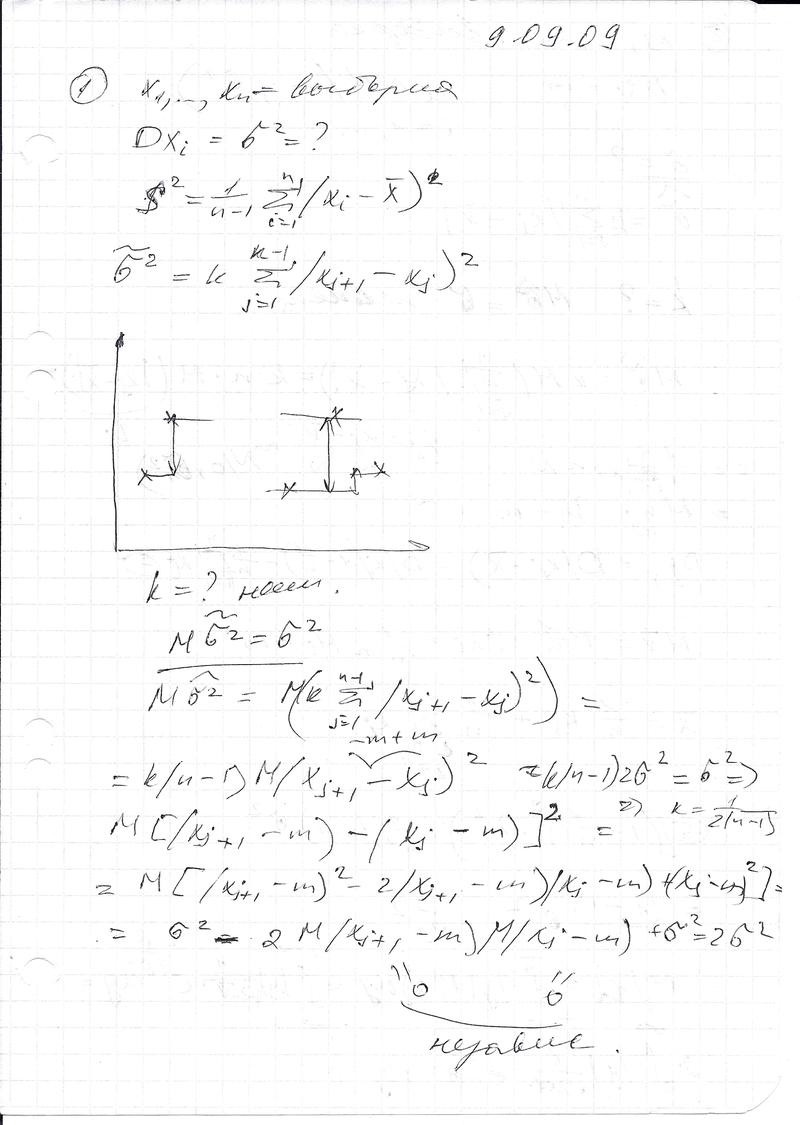 9.09.09
① x₁,..., xₙ – выборка
Dxᵢ = σ² = ?
S² = 1/(n-1) Σ_{i=1}^{n} (xᵢ - x̄)²
σ̃² = k Σ_{j=1}^{n-1} (xⱼ₊₁ - xⱼ)²
k = ?
Mσ̃² = σ²
Mσ̃² = M(k Σ_{j=1}^{n-1} (xⱼ₊₁ - xⱼ)²) =
-m+m
= k(n-1) M(xⱼ₊₁ - xⱼ)² = k(n-1)2σ² = σ² =>
=> k = 1/(2(n-1))
M[(xⱼ₊₁ - m) - (xⱼ - m)]² =
= M[(xⱼ₊₁ - m)² - 2(xⱼ₊₁ - m)(xⱼ - m) + (xⱼ - m)²] =
= σ² - 2M(xⱼ₊₁ - m)M(xⱼ - m) + σ² = 2σ²
"0 "0
независ.